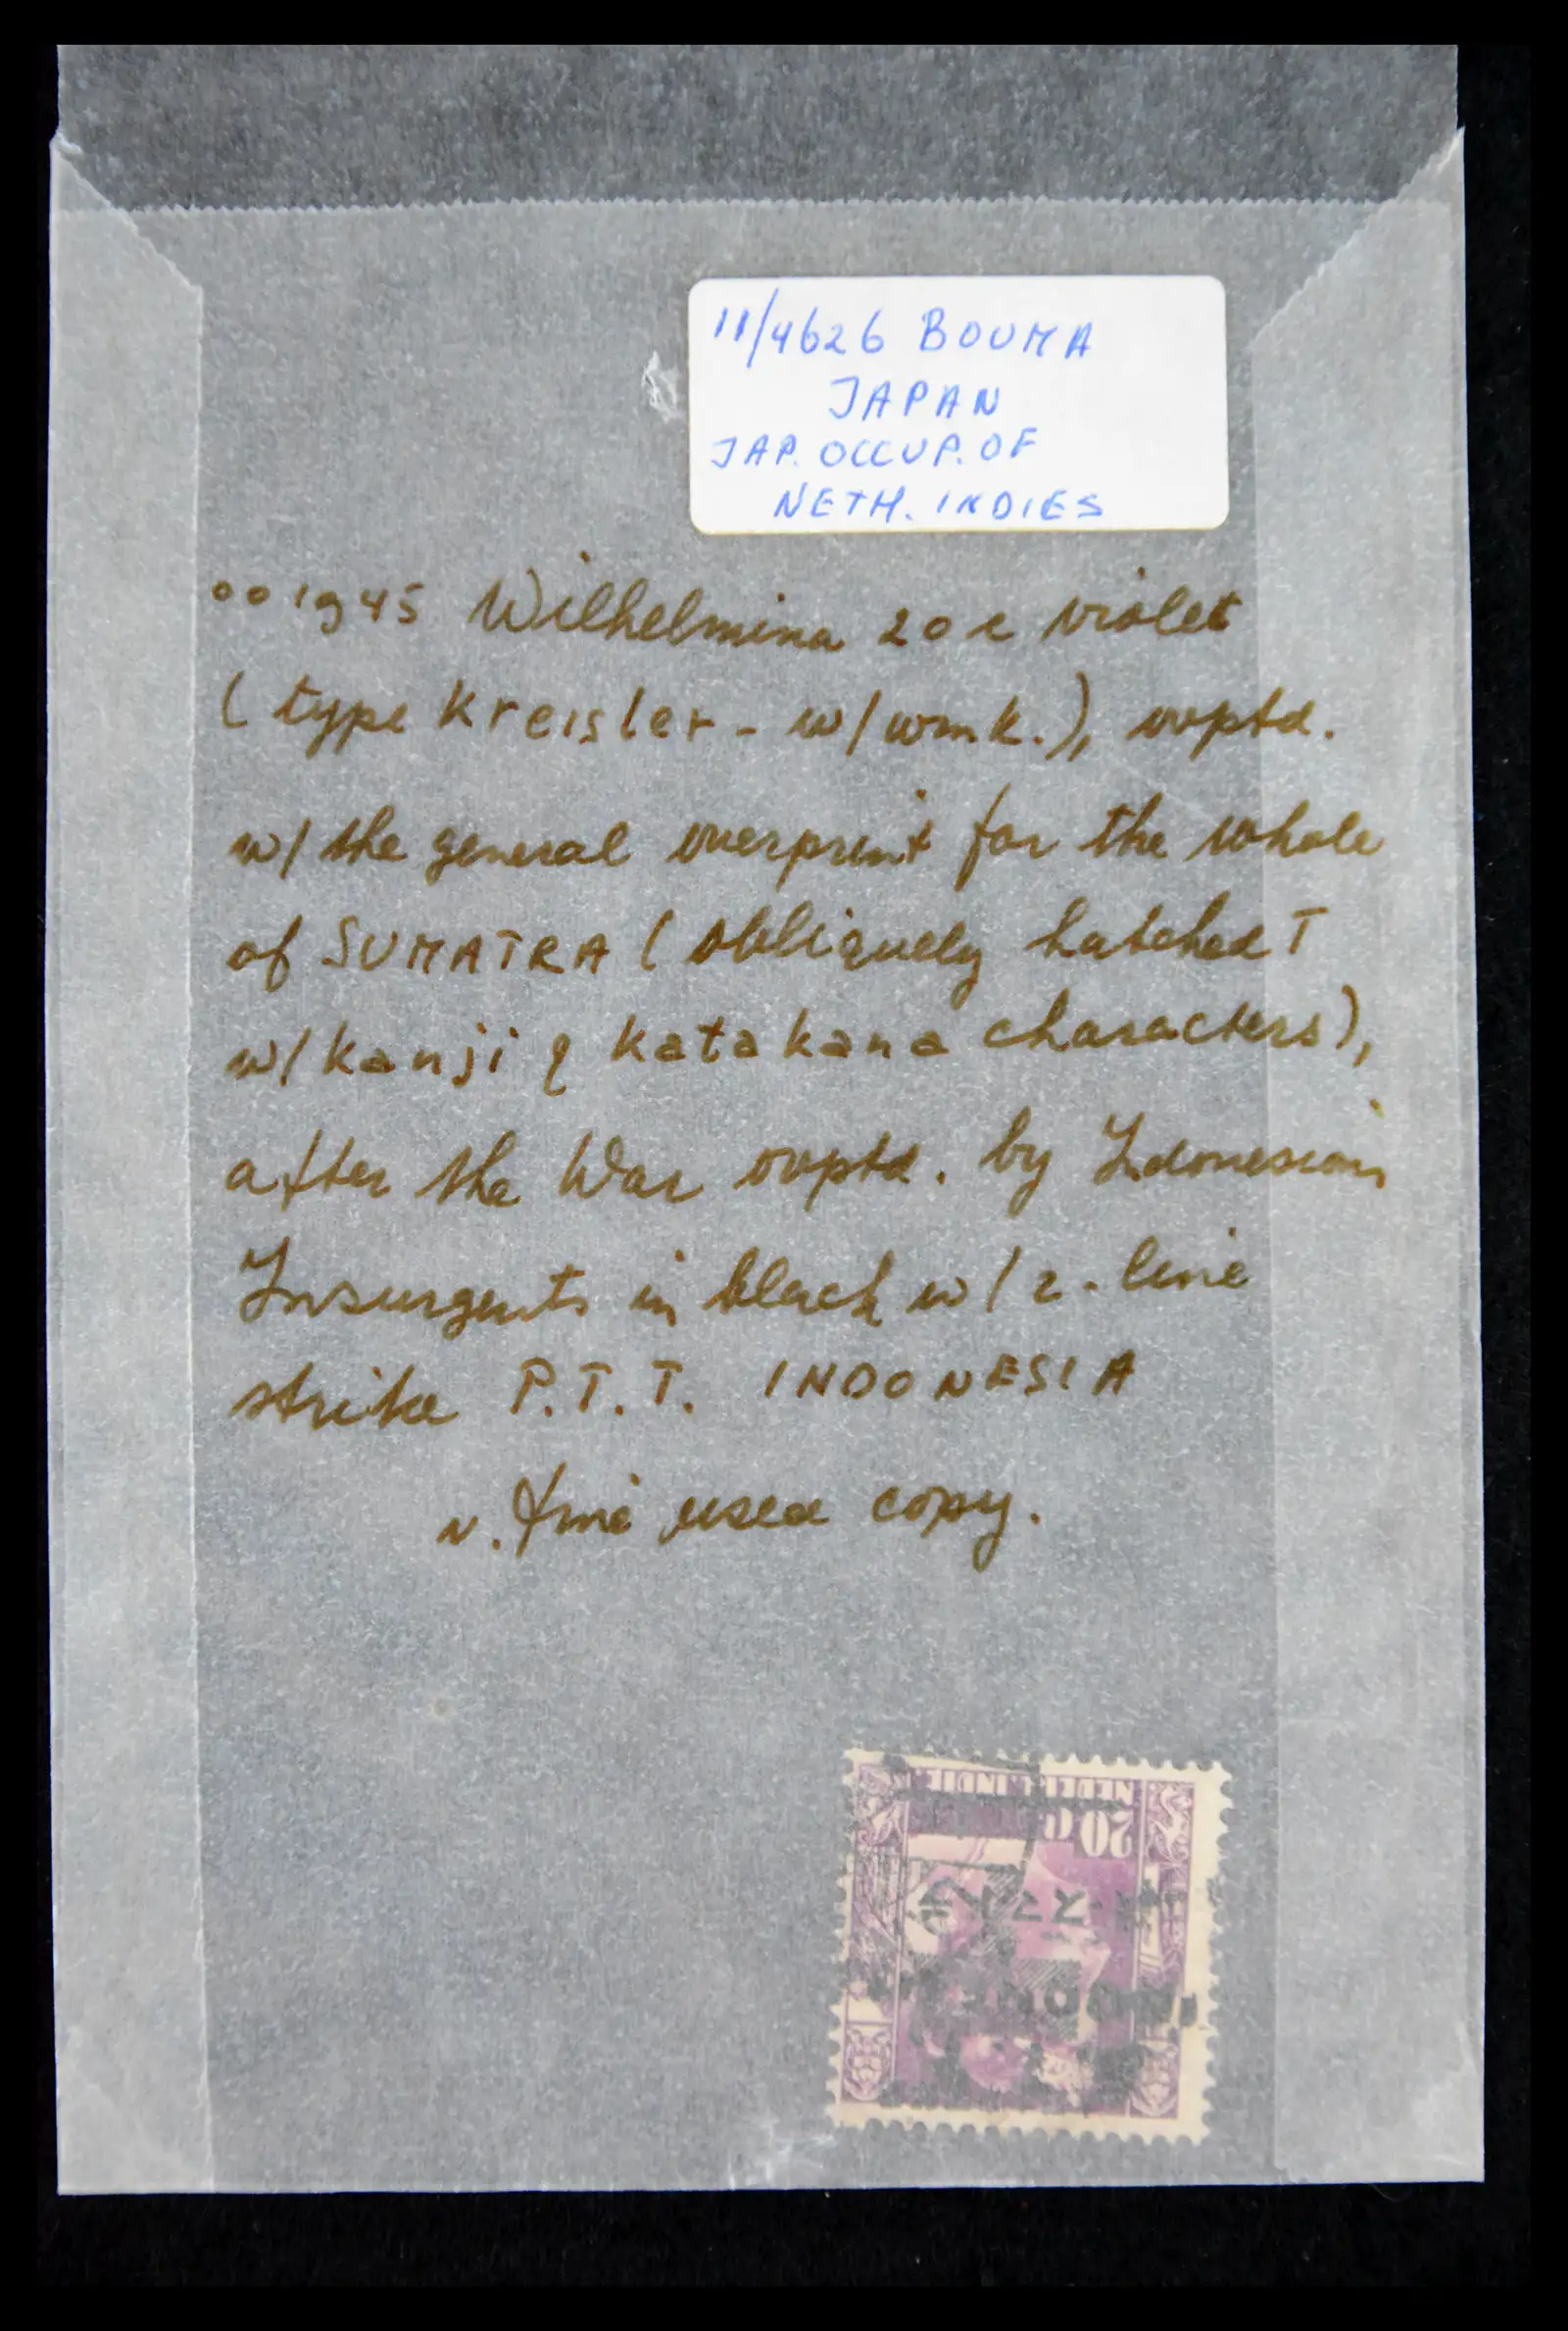 11/4626 BOUMA
JAPAN
JAP. OCCUP. OF
NETH. INDIES
oo 1945 Wilhelmina 20 c violet
(type Kreisler - w/wmk.), ovptd.
w/ the general overprint for the whole
of SUMATRA (obliquely hatched T
w/ kanji & katakana characters),
after the War ovptd. by Indonesian
Insurgents in black w/ 2-line
strike P.T.T. INDONESIA
v. fine used copy.
NEDERL.INDIE
20 C
INDONESIA